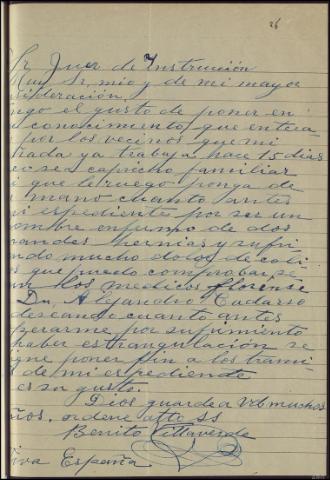 26
Sr Juez de Instrucción
Muy Sr. mio y de mi mayor
sideración.
ngo el gusto de poner en
conocimiento, que entera
por los vecinos que mi
ya trabaja hace 15 dias
ser capricho familiar
que le ruego ponga de
mano cuanto antes
espediente por ser un
ombre enfermo de dos
randes hernias y sufri
ndo mucho dolos de
s que puedo comprobarse
los medicos florense
Dn, Alejandro Cadarso
deseando cuanto antes
operarme por sufrimiento
haber estrangulación se
gne poner fin a los trami
s de mi espediende
es su gusto.
Dios guarde a Vd muchos
años. ordene atto SS
Benito Villaverde
iva España